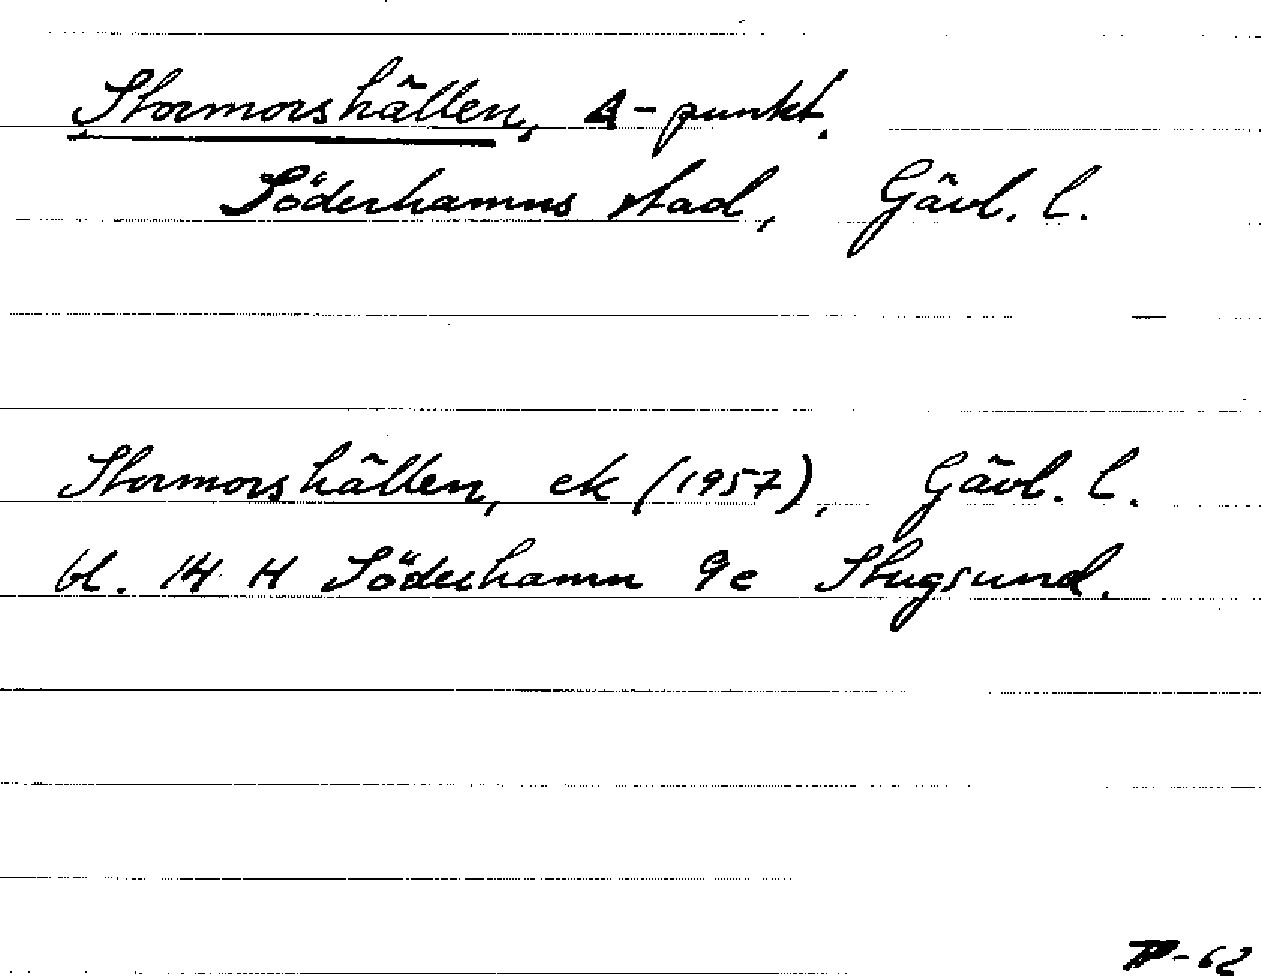 Stormorshällen, Δ-punkt.
Söderhamns stad, Gävl. l.
Stormorshällen, ek (1957), Gävl. l.
bl. 14 H Söderhamn 9c Stugsund.
-62